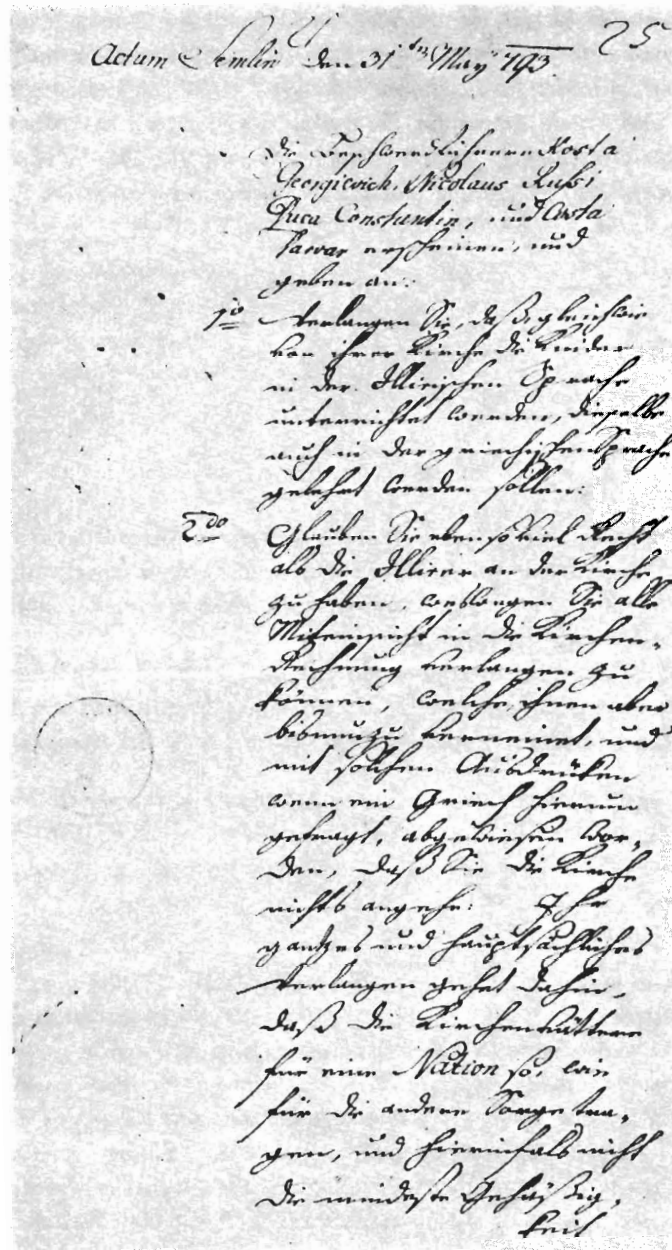 25
Actum Semlin den 31ten May 793.
Die Beschwerdführere Kosta
Georgievich, Nicolaus Russi
Luca Constantin, und Costa
erscheinen, und
geben an:
1mo Verlangen Sie, daß, gleichwie
von ihrer Kirche die Kinder
in der Illirischen Sprache
unterrichtet werden, dieselbe
auch in der griechischen Sprache
gelehrt werden sollen:
2do Glauben Sie eben so viel Recht
als die Illirer an der Kirche
zu haben, weswegen Sie alle
Miteinsicht in die Kirchen-
Rechnung verlangen zu
können, welche ihnen aber
bisnunzu verneinet, und
mit solchen Ausdrüken
wenn ein Griech hierum
gefragt, abgewiesen wor-
den, daß Sie die Kirche
nichts angehe: Ihr
gantzes und hauptsächliches
Verlangen gehet dahin,
daß die Kirchenvättere
für eine Nation so, wie
für die andere Sorge tra-
gen, und hierinfals nicht
die mindeste Gehäßig-
keit